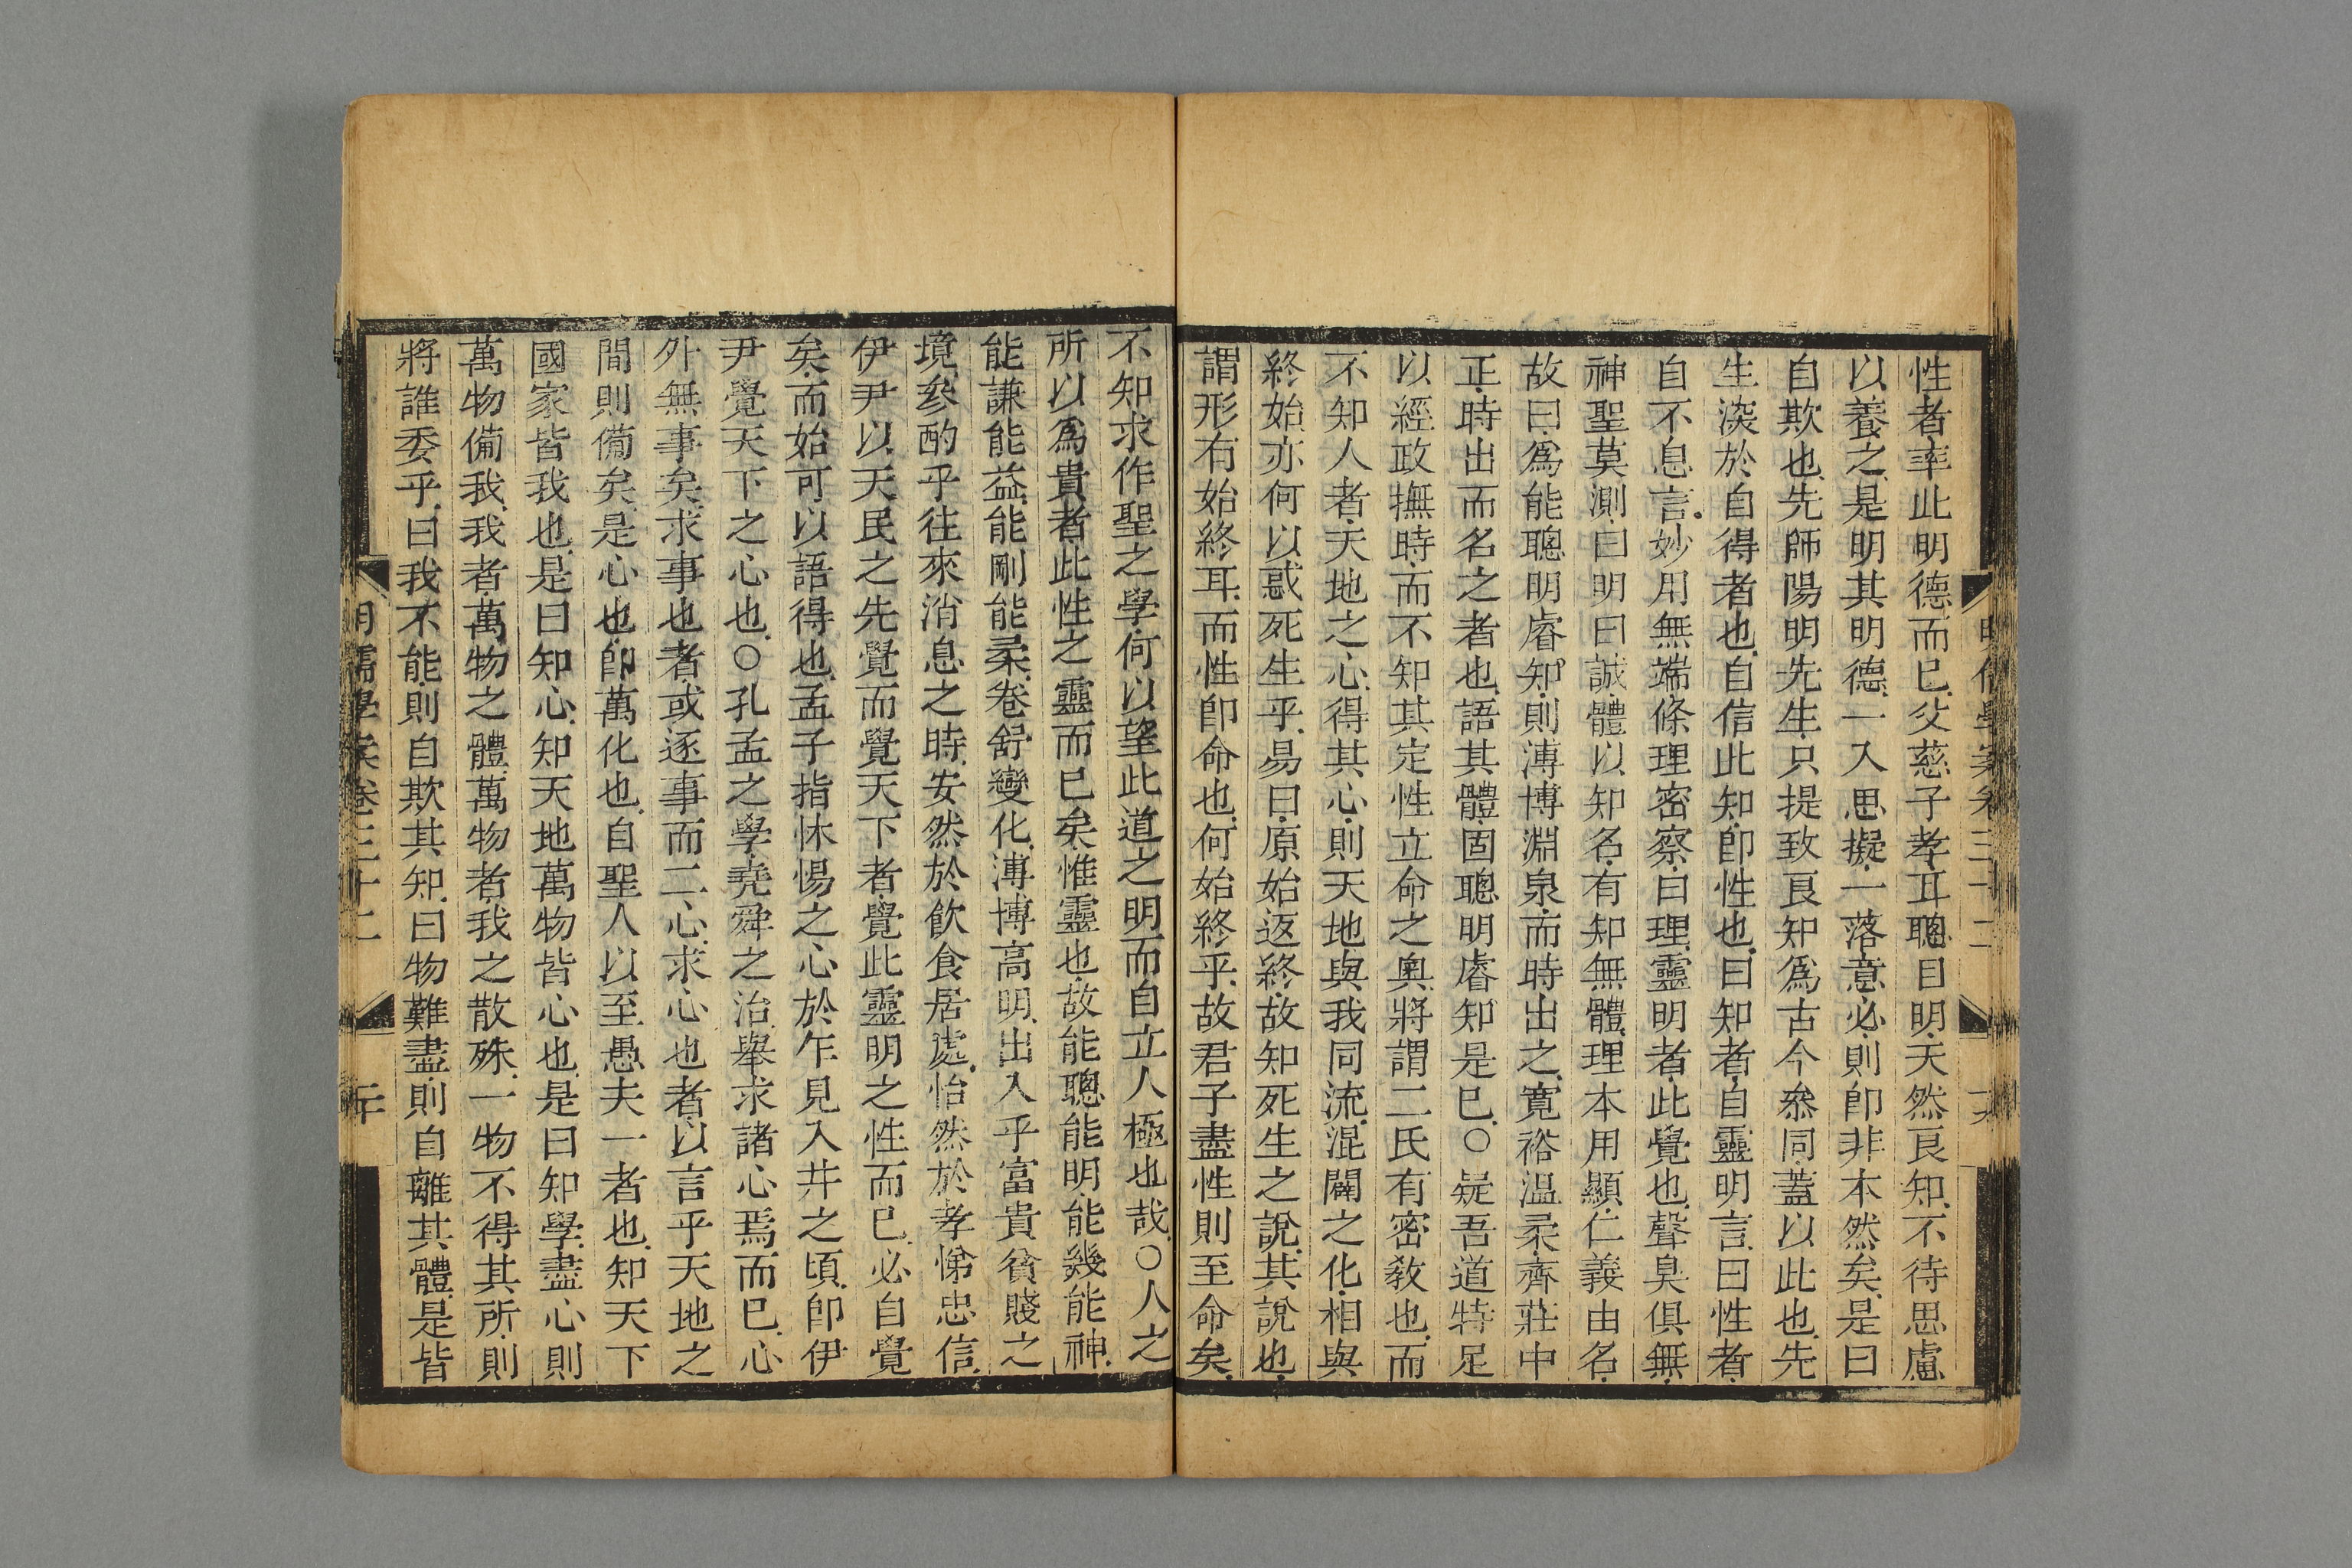 性者率此明德而已父慈子孝耳聰目明天然良知不待思慮
以養之是明其明德一入思擬一落意必則卽非本然矣是曰
自欺也先師陽明先生只提致良知爲古今叅同蓋以此也先
生深於自得者也自信此知卽性也曰知者自靈明言曰性者
自不息言妙用無端條理密察曰理靈明者此覺也聲臭俱無
神聖莫測曰明曰誠體以知名有知無體理本用顯仁義由名
故曰爲能聰明睿知則溥博淵泉而時出之寬裕温柔齊莊中
正時出而名之者也語其體固聰明睿知是已○疑吾道特足
以經政撫時而不知其定性立命之奥將謂二氏有密教也而
不知人者天地之心得其心則天地與我同流混闢之化相與
終始亦何以惑死生乎易曰原始返終故知死生之說其說也
謂形有始終耳而性卽命也何始終乎故君子盡性則至命矣
不知求作聖之學何以望此道之明而自立人極也哉○人之
所以爲貴者此性之靈而已矣惟靈也故能聰能明能幾能神
能謙能益能剛能柔卷舒變化溥博高明出入乎富貴貧賤之
境參酌乎往來消息之時安然於飲食居處怡然於孝悌忠信
伊尹以天民之先覺而覺天下者覺此靈明之性而已必自覺
矣而始可以語得也孟子指怵惕之心於乍見入井之頃卽伊
尹覺天下之心也○孔孟之學堯舜之治舉求諸心焉而已心
外無事矣求事也者或逐事而二心求心也者以言乎天地之
間則備矣是心也卽萬化也自聖人以至愚夫一者也知天下
國家皆我也是曰知心知天地萬物皆心也是曰知學盡心則
萬物備我我者萬物之體萬物者我之散殊一物不得其所則
將誰委乎曰我不能則自欺其知曰物難盡則自離其體是皆
明儒學案卷三十二